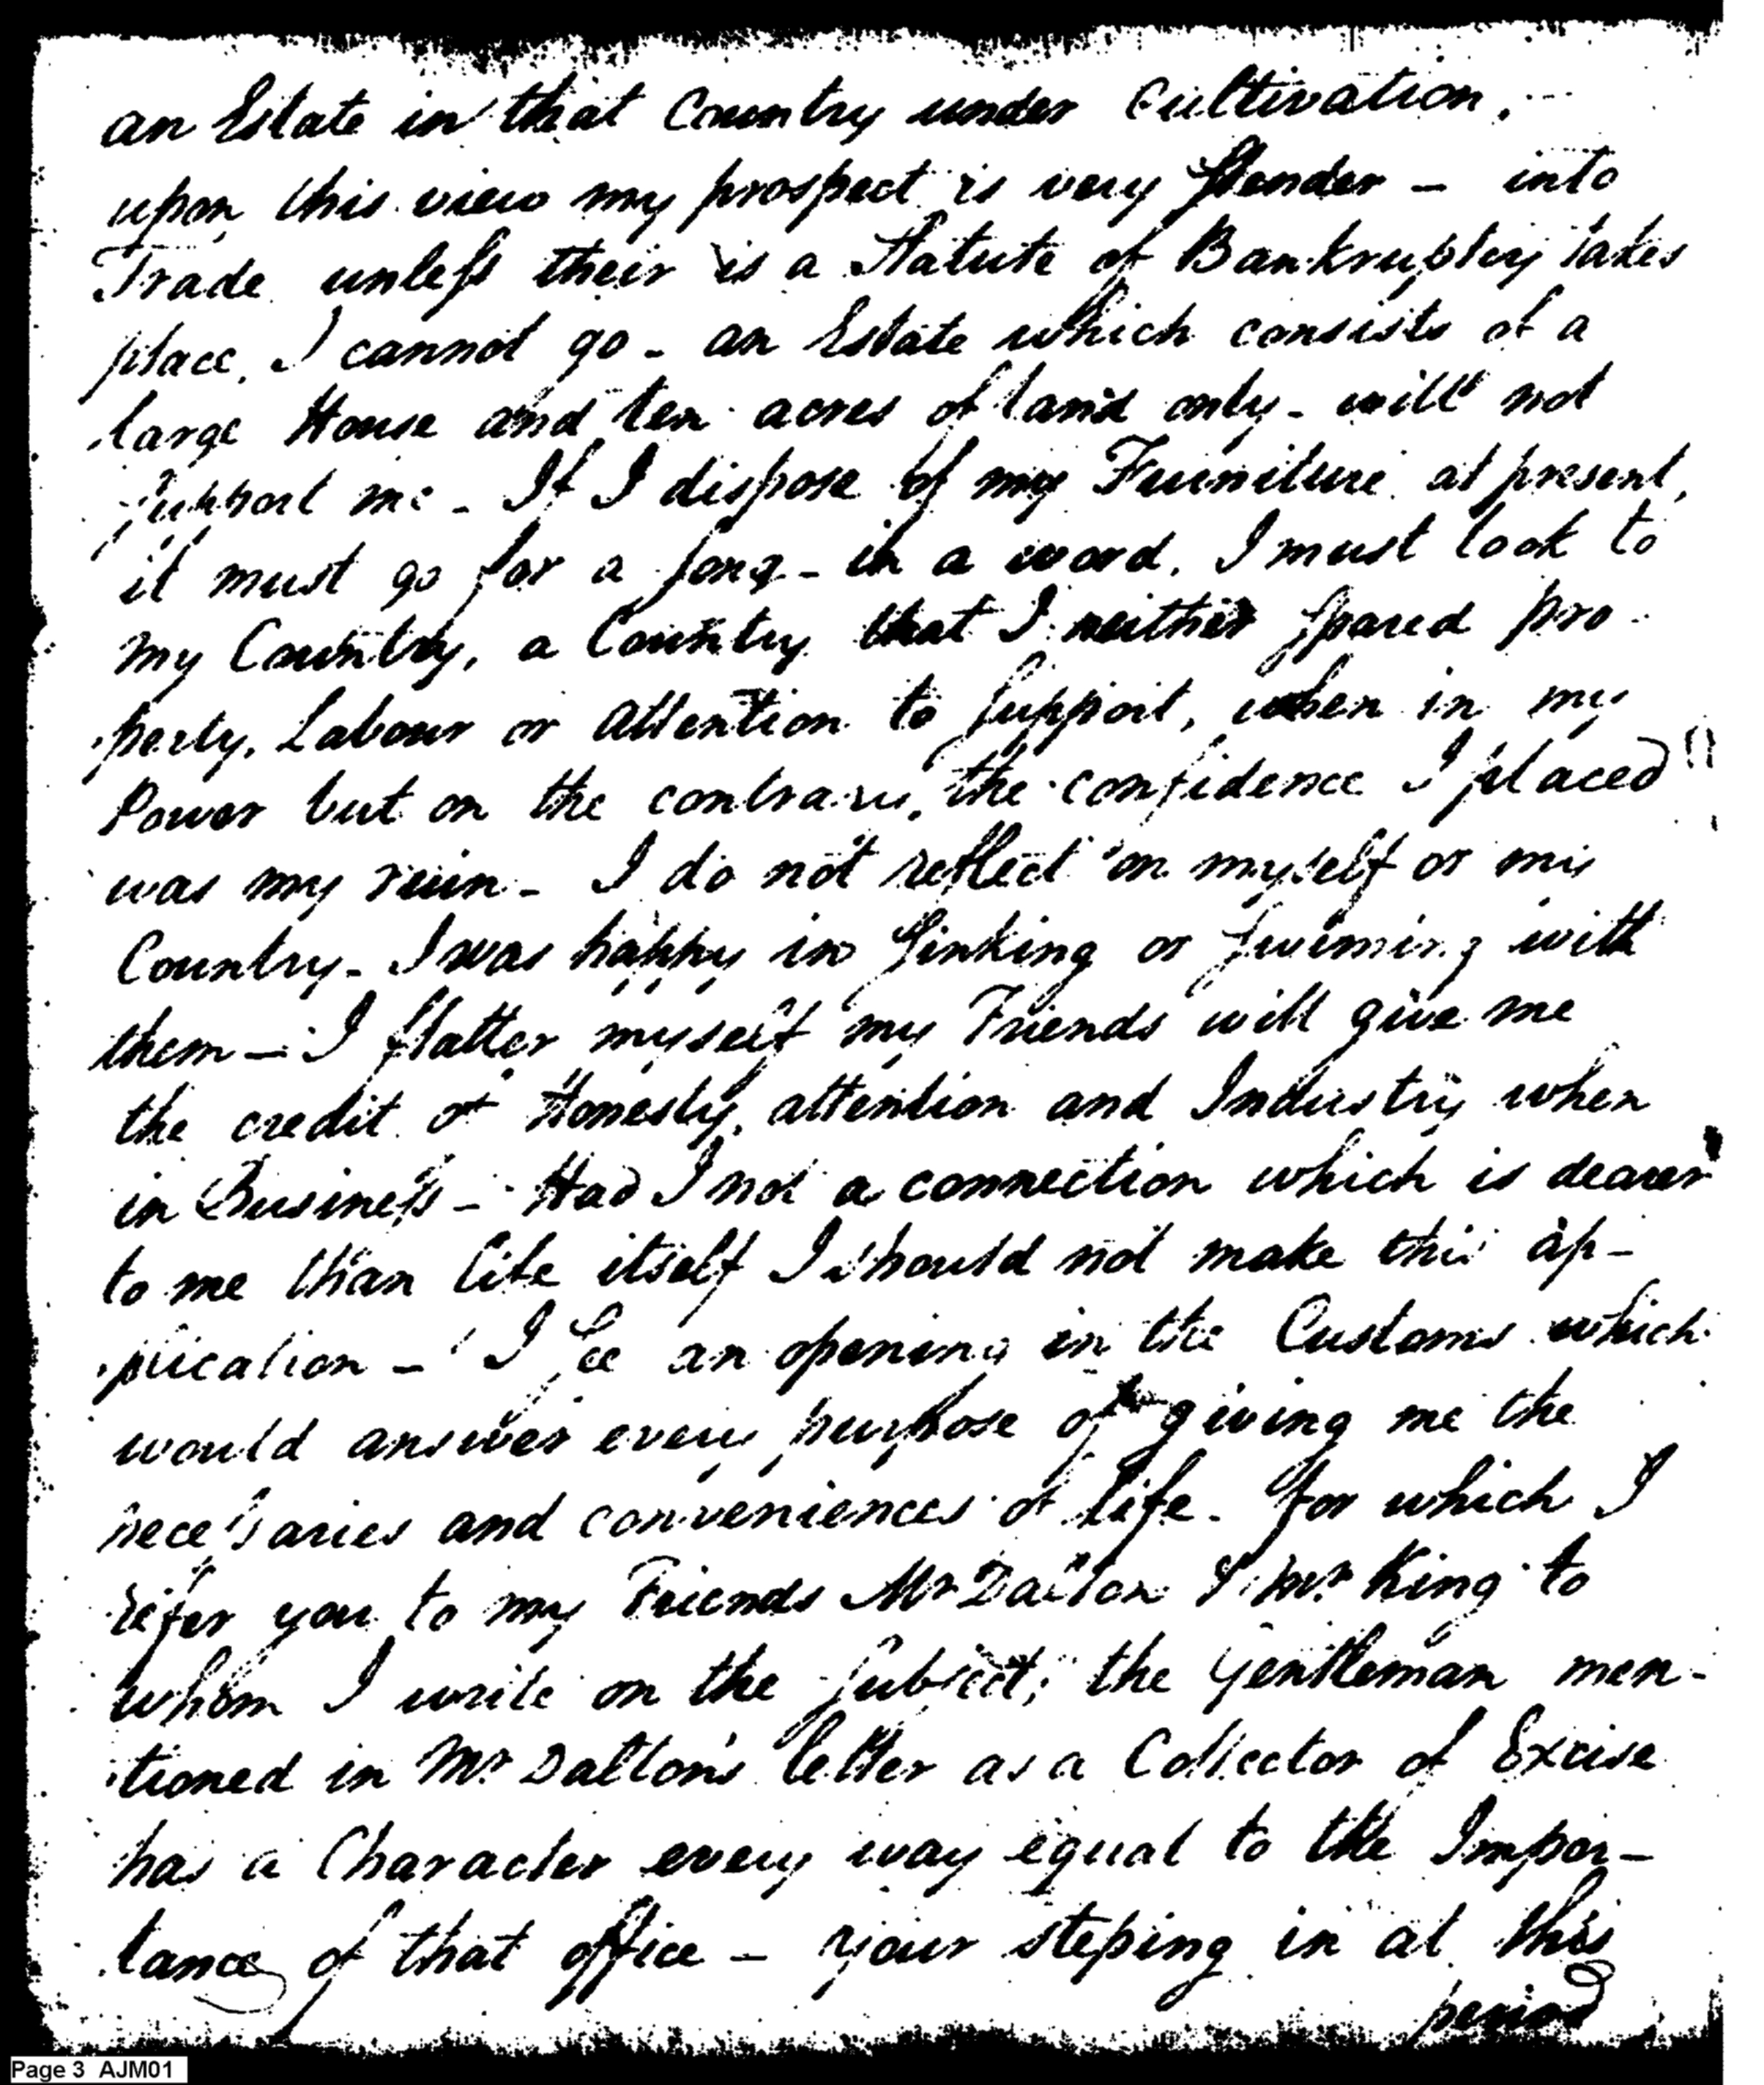 an Estate in that Country under Cultivation.
upon this view my prospect is very slender - into
Trade unless their is a Statute of Bankruptcy takes
place, I cannot go - an Estate which consists of a
large House and ten acres of land only - will not
support me - If I dispose of my Furniture at present,
it must go for a song - in a word, I must look to
my Country, a Country that I neither spared pro-
perty, Labour or attention to support, when in my
Power but on the contrary, the confidence I placed
was my ruin - I do not reflect on myself or my
Country - I was happy in sinking or swiming with
them - I flatter myself my Friends will give me
the credit of Honesty, attention and Industry when
in Business - Had I not a connection which is dearer
to me than life itself I should not make this ap-
plication - I see an opening in the Customs which
would answer every purpose of giving me the
necessaries and conveniences of life - for which I
refer you to my Friends Mr Dalton & Mr King to
whom I write on the subject; the Gentleman men-
tioned in Mr Dalton's letter as a Collector of Excise
has a Character every way equal to the Impor-
tance of that office - your steping in at this
period
Page 3 AJM01